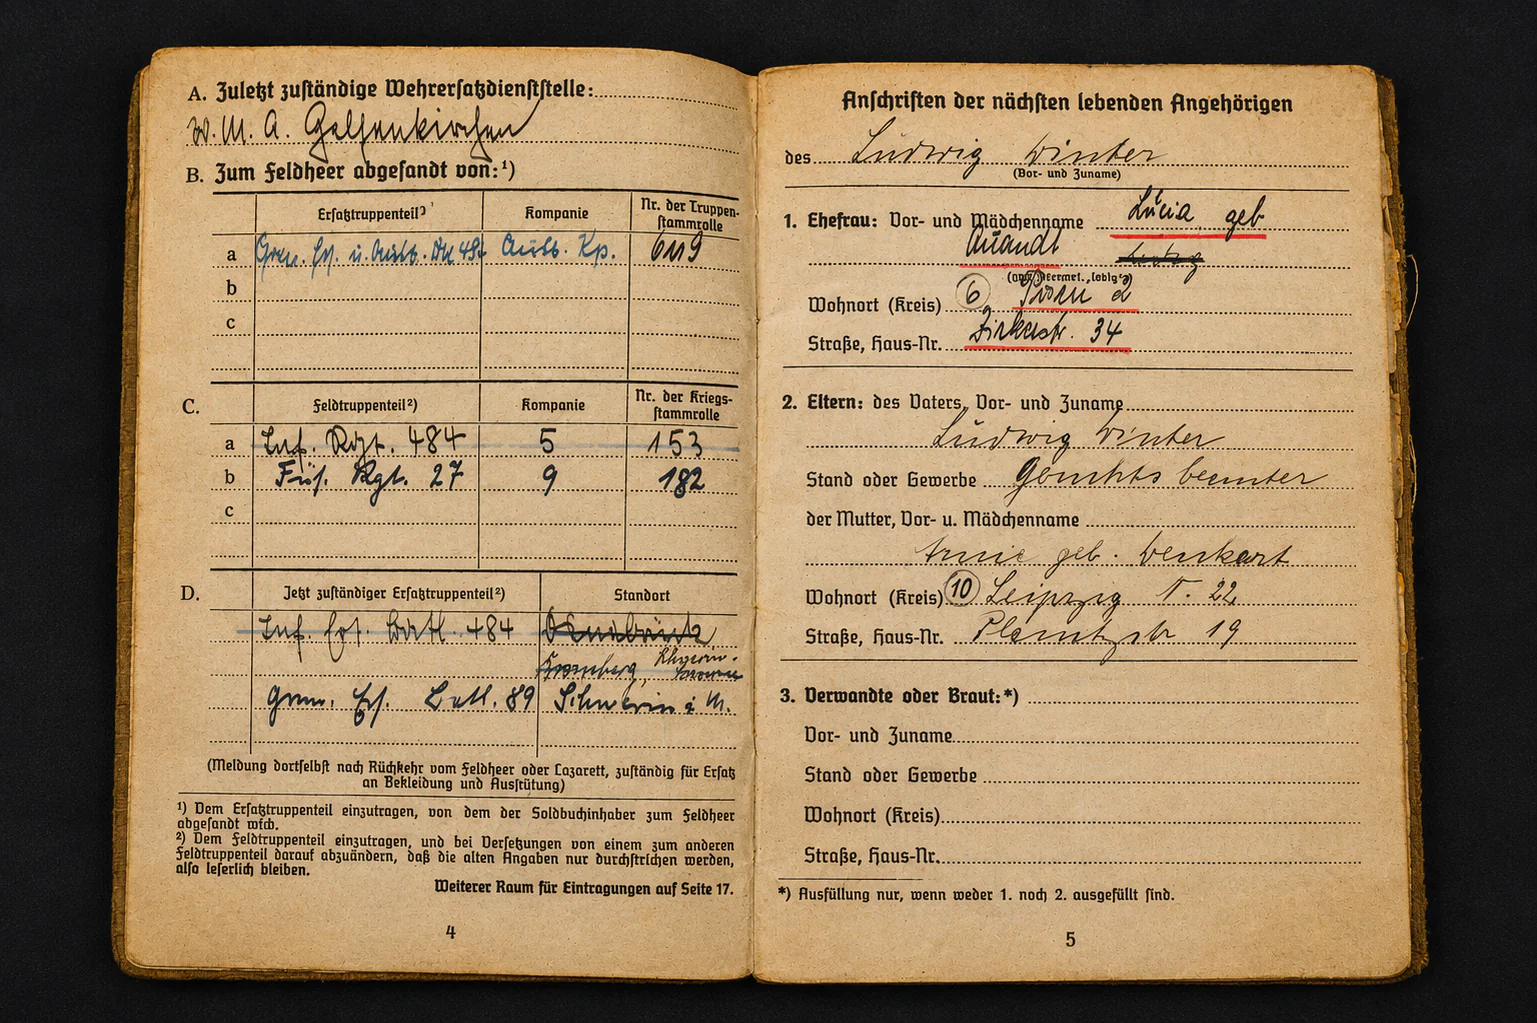 A. Zuletzt zuständige Wehrersatzdienststelle:
W. M. A. Gelsenkirchen
B. Zum Feldheer abgesandt von:¹)
Ersatztruppenteil³ Kompanie Nr. der Truppen-
stammrolle
a Gren. Ers. u. Ausb. Ausb. Kp.
b
c
C. Feldtruppenteil²) Kompanie Nr. der Kriegs-
stammrolle
a Inf. Rgt. 484 5 153
b Füs. Rgt. 27 9 182
c
D. Jetzt zuständiger Ersatztruppenteil²) Standort
Inf. Ers. Batl. 484 Osnabrück
Gren. Ers. Batl. 89 Schwerin i. M.
(Meldung dortselbst nach Rückkehr vom Feldheer oder Lazarett, zuständig für Ersatz
an Bekleidung und Ausrüstung)
¹) Dem Ersatztruppenteil einzutragen, von dem der Soldbuchinhaber zum Feldheer
abgesandt wird.
²) Dem Feldtruppenteil einzutragen, und bei Versetzungen von einem zum anderen
Feldtruppenteil darauf abzuändern, daß die alten Angaben nur durchstrichen werden,
also leserlich bleiben.
Weiterer Raum für Eintragungen auf Seite 17.
4
Anschriften der nächsten lebenden Angehörigen
des Ludwig Winter
(Vor- und Zuname)
1. Ehefrau: Vor- und Mädchenname Lucia geb
Quandt
Wohnort (Kreis) 6 Posen
Straße, Haus-Nr. Zirkusstr. 34
2. Eltern: des Vaters, Vor- und Zuname
Ludwig Winter
Stand oder Gewerbe Gerichtsbeamter
der Mutter, Vor- u. Mädchenname
geb. Wenkart
Wohnort (Kreis) 10 Leipzig N. 22
Straße, Haus-Nr. 19
3. Verwandte oder Braut:*)
Vor- und Zuname
Stand oder Gewerbe
Wohnort (Kreis)
Straße, Haus-Nr.
*) Ausfüllung nur, wenn weder 1. noch 2. ausgefüllt sind.
5